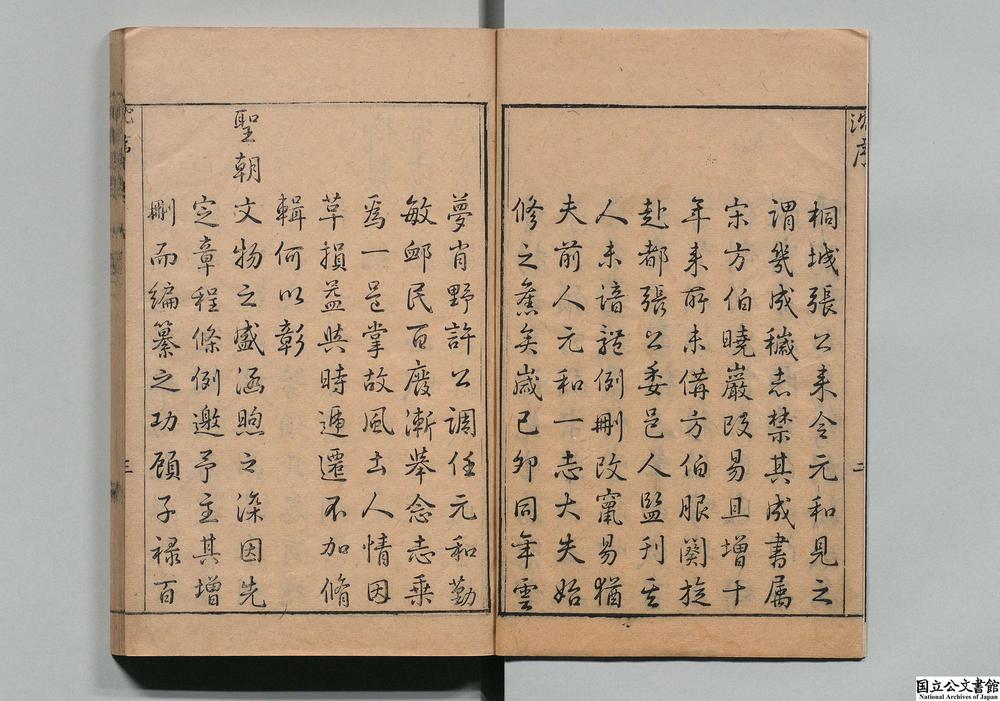 沈序
桐城張公来令元和見之
謂幾成穢志禁其成書属
宋方伯曉巖改易且增十
年来所未備方伯服闋旋
赴都張公委邑人監刊其
人未諳體例刪改竄易猶
夫前人元和一志大失始
修之舊矣歲己卯同年雲
二
夢肖野許公調任元和勤
敏卹民百廢漸舉念志乗
為一邑掌故風土人情因
草損益與時遞遷不加脩
輯何以彰
聖朝文物之盛涵煦之深因先
定章程條例邀予主其增
刪而編纂之功顧子禄百
三
国立公文書館
National Archives of Japan